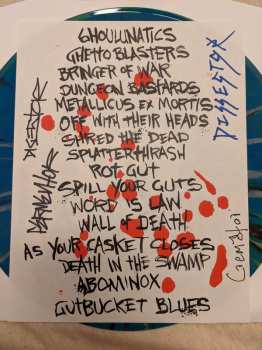 GHOULUNATICS
GHETTO BLASTERS
BRINGER OF WAR
DUNGEON BASTARDS
METALLICUS EX MORTIS
OFF WITH THEIR HEADS
SHRED THE DEAD
SPLATTERTHRASH
ROT GUT
SPILL YOUR GUTS
WORD IS LAW
WALL OF DEATH
AS YOUR CASKET CLOSES
DEATH IN THE SWAMP
ABOMINOX
GUTBUCKET BLUES